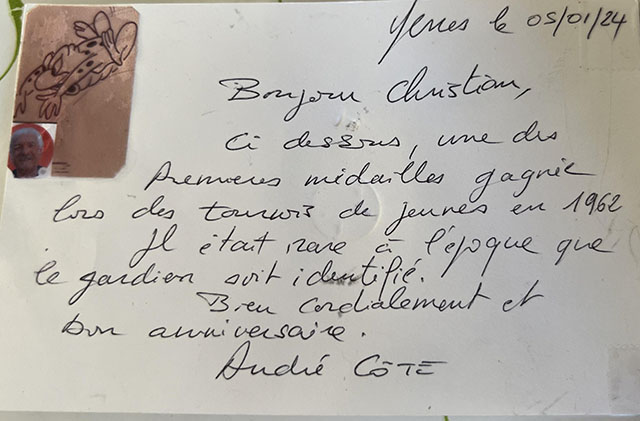 Yerres le 05/01/24
Bonjour Christian,
Ci dessous, une des
Premieres médailles gagnée
lors des tournois de jeunes en 1962
Il était rare à l'époque que
le gardien soit identifié.
Bien cordialement et
bon anniversaire.
André CÔTE